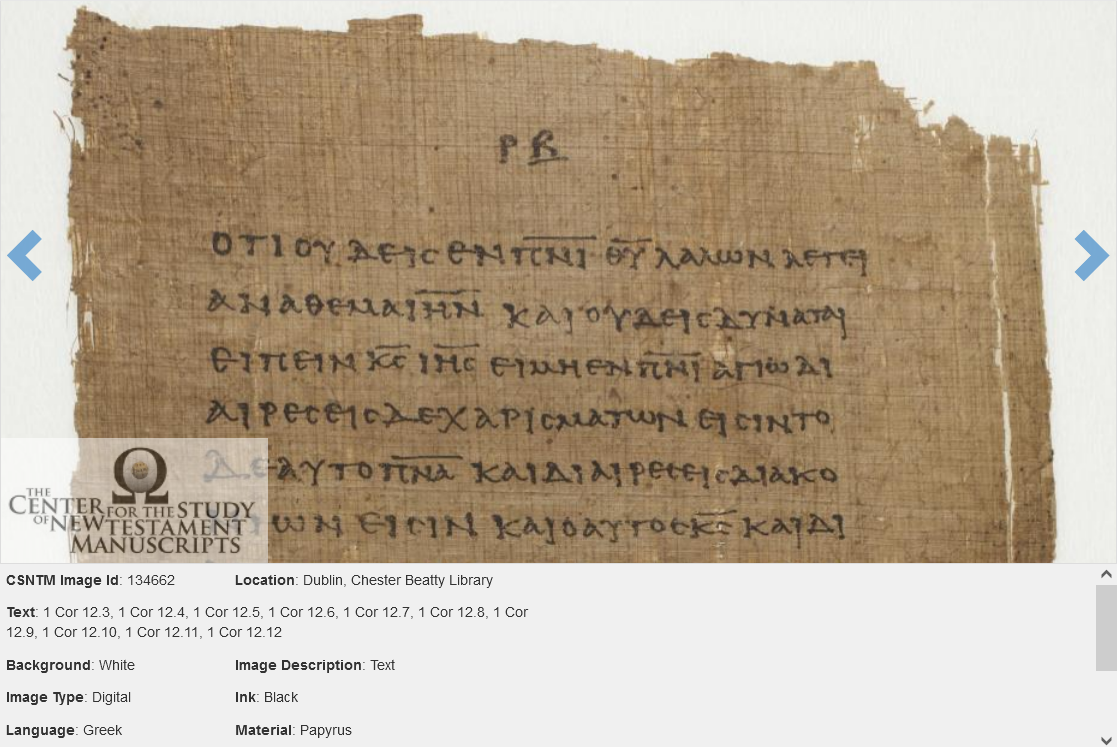 ΡΒ
ΟΤΙ ΟΥΔΕΙϹ ΕΝ Π̅Ν̅Ι̅ Θ̅Υ̅ ΛΑΛΩΝ ΛΕΓΕΙ
ΑΝΑΘΕΜΑ Ι̅Η̅Ν̅ ΚΑΙ ΟΥΔΕΙϹ ΔΥΝΑΤΑΙ
ΕΙΠΕΙΝ Κ̅Ϲ̅ Ι̅Η̅Ϲ̅ ΕΙ ΜΗ ΕΝ Π̅Ν̅Ι̅ ΑΓΙΩ ΔΙ
ΑΙΡΕϹΕΙϹ ΔΕ ΧΑΡΙϹΜΑΤΩΝ ΕΙϹΙΝ ΤΟ
ΔΕ ΑΥΤΟ Π̅Ν̅Α̅ ΚΑΙ ΔΙΑΙΡΕϹΕΙϹ ΔΙΑΚΟ
ΩΝ ΕΙϹΙΝ ΚΑΙ Ο ΑΥΤΟϹ Κ̅Ϲ̅ ΚΑΙ ΔΙ
THE CENTER FOR THE STUDY OF NEW TESTAMENT MANUSCRIPTS
CSNTM Image Id: 134662 Location: Dublin, Chester Beatty Library
Text: 1 Cor 12.3, 1 Cor 12.4, 1 Cor 12.5, 1 Cor 12.6, 1 Cor 12.7, 1 Cor 12.8, 1 Cor
12.9, 1 Cor 12.10, 1 Cor 12.11, 1 Cor 12.12
Background: White Image Description: Text
Image Type: Digital Ink: Black
Language: Greek Material: Papyrus